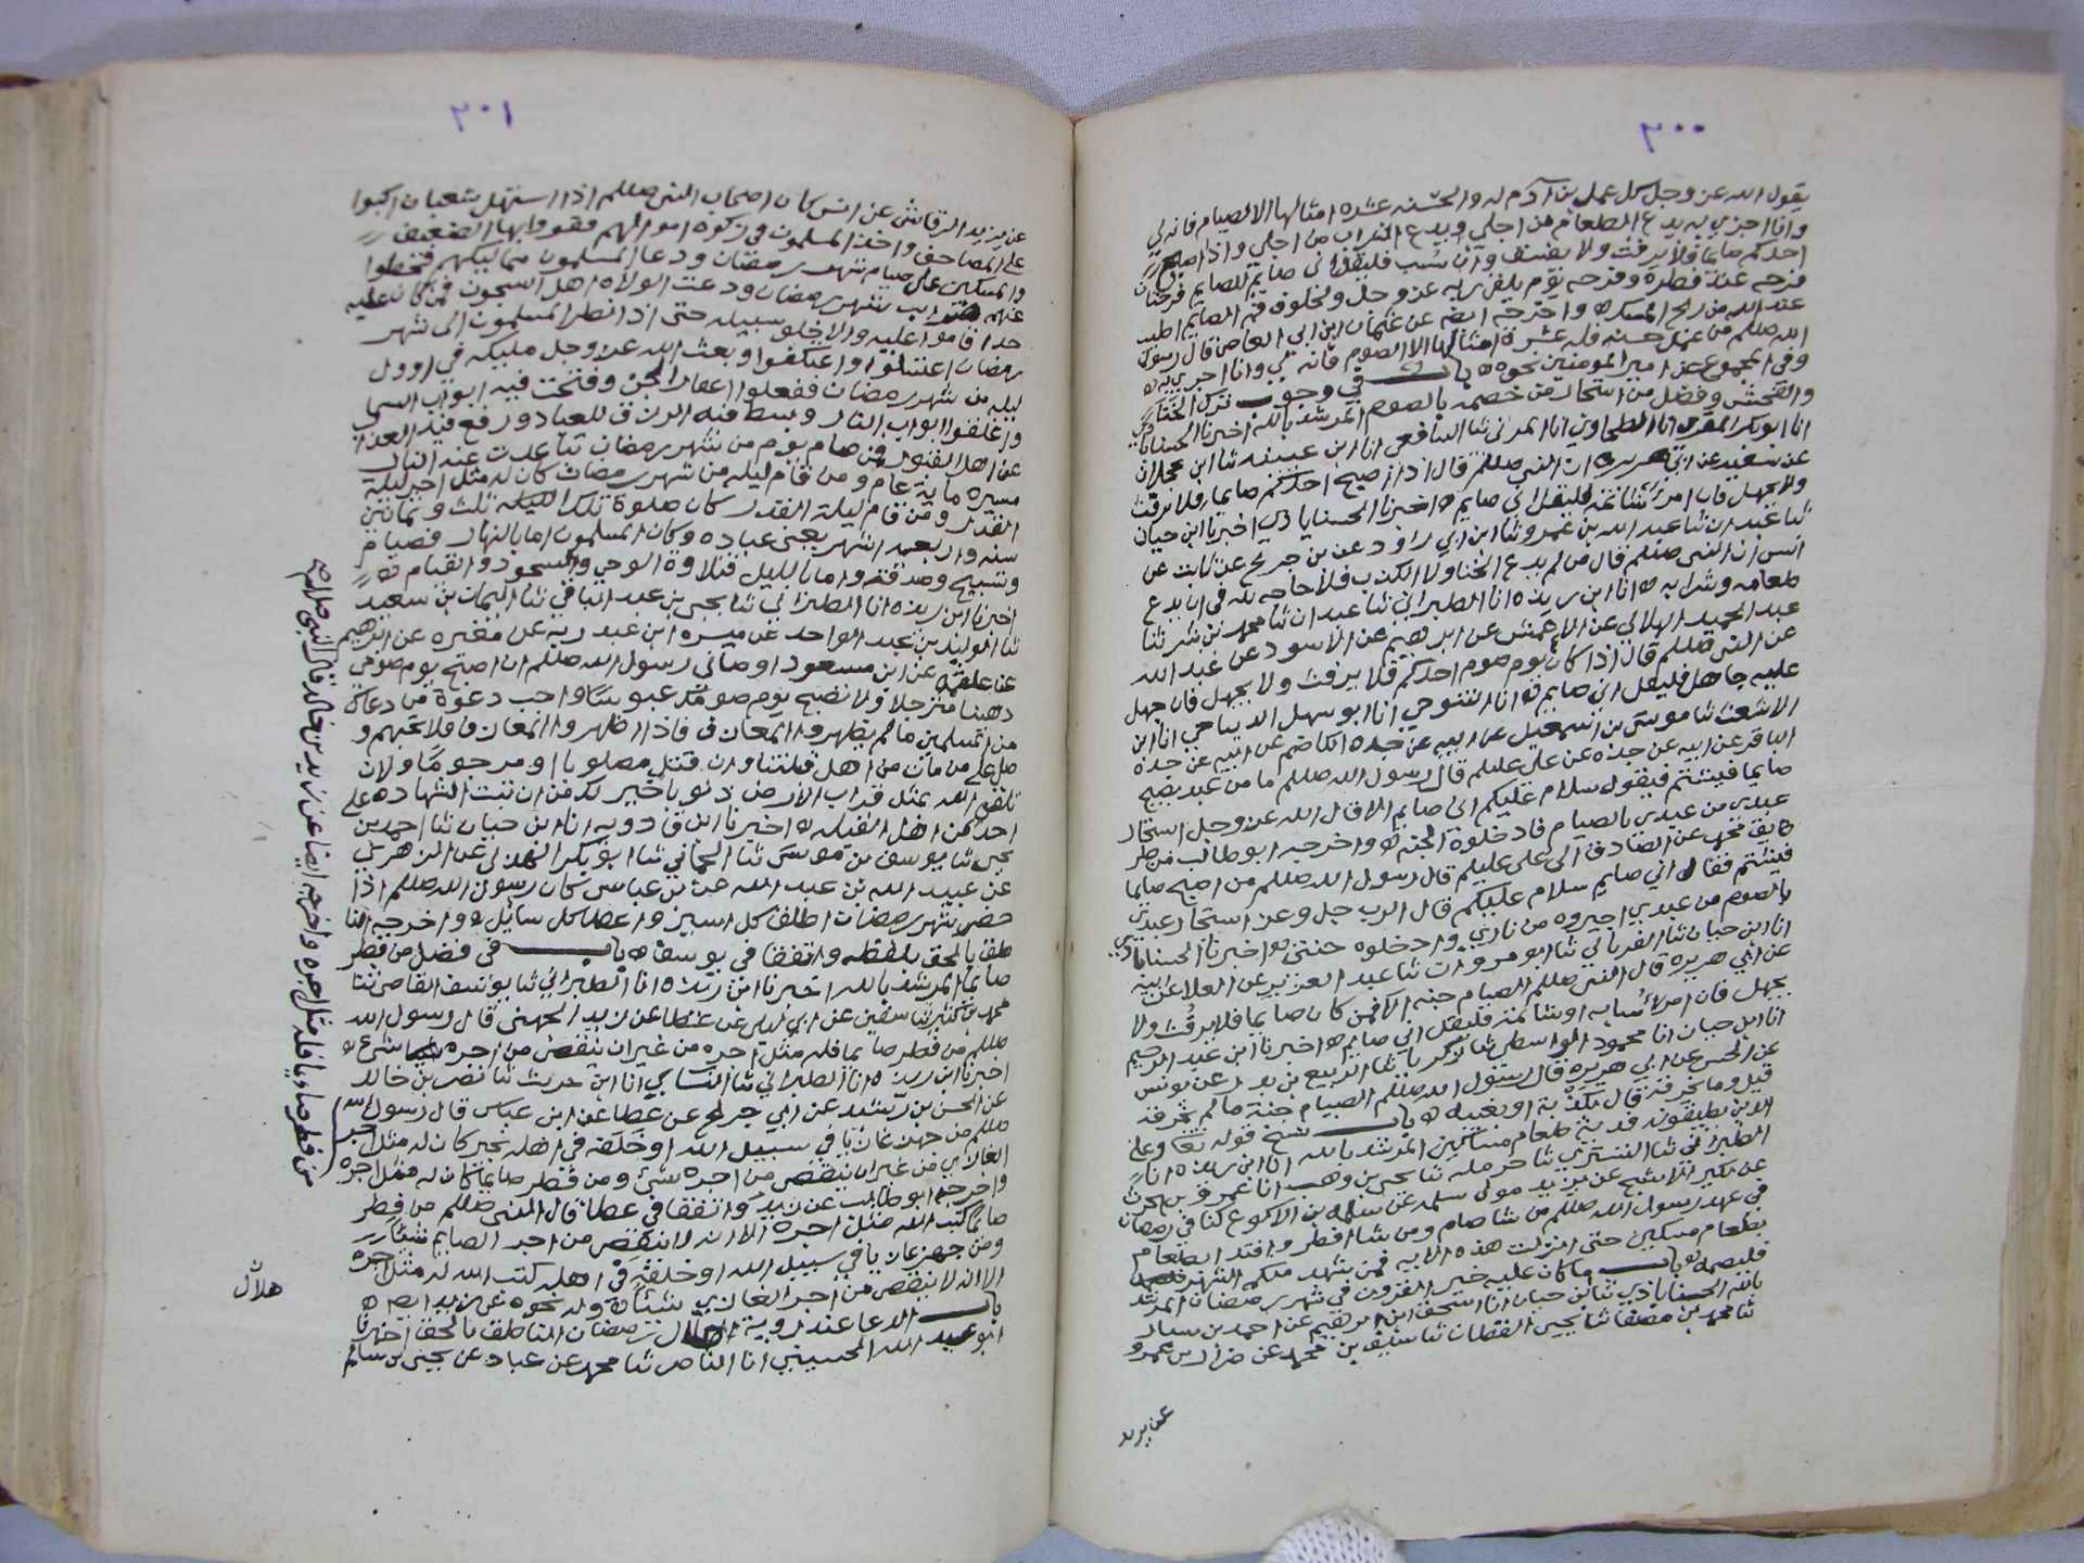 ٣٠٠
يقول الله عز وجل كل عمل بن آدم له والحسنه عشره امثالها الا الصيام فانه لي
وانا اجزي به يدع الطعام من اجلي ويدع الشراب من اجلي واذا اصبح
احدكم صايما فلا يرفث ولا يفسق وان سب فليقل اني صايم للصايم فرحتان
فرحه عند فطره وفرحه يوم يلقى ربه عز وجل ولخلوف فم الصايم اطيب
عند الله من ريح المسك ه واخرجه ايضا عن عثمان ابن ابي العاص قال رسول
الله صللم من عمل حسنه فله عشرة امثالها الا الصوم فانه لي وانا اجزي به ه
وفي المجموع عن امير المومنين نحوه ه باب في وجوب ترك الخنا
والفحش وفضل من استجار من خصمه بالصوم المرشد بالله اخبرنا الحسناباذي
انا ابو بكر المقري انا الطحاوي انا المزني ثنا الشافعي انا ابن عيينه ثنا ابن عجلان
عن سعيد عن ابي هريره ان النبي صللم قال اذا اصبح احدكم صايما فلا يرفث
ولا يجهل فان امرئ شاتمه فليقل اني صايم ه اخبرنا الحسناباذي اخبرنا ابن حيان
ثنا عبدان ثنا عبد الله بن عمر وثنا ابن ابي راود عن بن جريج عن ثابت عن
انس ان النبي صللم قال من لم يدع الخنا ولا الكذب فلا حاجه لله في ان يدع
طعامه وشرابه ه انا ابن ريذه انا الطبراني ثنا عبدان ثنا محمد بن بشر ثنا
عبد المجيد الهلالي عن الاعمش عن ابرهيم عن الاسود عن عبد الله
عن النبي صللم قال اذا كان يوم صوم احدكم فلا يرفث ولا يجهل فان جهل
عليه جاهل فليقل اني صايم ه انا التنوخي انا ابو سهل الديباجي انا ابن
الاشعث ثنا موسى بن اسمعيل عن ابيه عن جده الكاضم عن ابيه عن جده
الباقر عن ابيه عن جده عن علي عليلم قال رسول الله صللم ما من عبد يصبح
صايما فيشتم فيقول سلام عليكم اني صايم الا قال الله عز وجل استجار
عبدي من عبدي بالصيام فادخلوه الجنه ه واخرجه ابو طالب من طر
يق محمد عن الصادق الى علي عليلم قال رسول الله صللم من اصبح صايما
فيشتم فقال اني صايم سلام عليكم قال الرب جل وعز استجار عبدي
بالصوم من عبدي اجيروه من ناري وادخلوه جنتي ه اخبرنا الحسناباذي
انا ابن حيان ثنا الفريابي ثنا ابو مروان ثنا عبد العزيز عن العلا عن ابيه
عن ابي هريره قال النبي صللم الصيام جنه الا فمن كان صايما فلا يرفث ولا
يجهل فان امرئ سابه او شاتمه فليقل اني صايم ه اخبرنا ابن عبد الرحيم
انا ابن حيان انا محمود الواسطي ثنا زكريا ثنا الربيع بن بدر عن يونس
عن الحسن عن ابي هريره قال رسول الله صللم الصيام جنة ما لم يخرقه
قيل وما يخرقه قال بكذبة او بغيبه ه باب نسخ قوله تعا وعلى
الذين يطيقونه فدية طعام مسكين المرشد بالله انا ابن ريذه انا
الطبراني ثنا التستري ثنا حرمله ثنا يحيى بن وهب انا عمرو بن الحرث
عن بكير الاشج عن يزيد مولى سلمه عن سلمه بن الاكوع كنا في رمضان
في عهد رسول الله صللم من شا صام ومن شا افطر وافتدا بطعام
بطعام مسكين حتى انزلت هذه الايه فمن شهد منكم الشهر فليصمه
فليصمه ه باب ما كان عليه خير القرون في شهر رمضان المرشد
بالله الحسناباذي ثنا ابن حيان انا اسحق ابن ابرهيم عن احمد بن سيار
ثنا محمد بن مصفا ثنا يحيى القطان ثنا سيف بن محمد عن ضرار بن عمرو
عن يزيد
٣٠١
عن يزيد الرقاشي عن انس كان اصحاب النبي صللم اذا استهل شعبان اكبوا
على المصاحف واخذ المسلمون في زكوة اموالهم فقووا بها الضعيف
والمسكين على صيام شهر رمضان ودعا المسلمون مماليكهم فحطوا
عنهم ضرايب شهر رمضان ودعت الولاه اهل السجون فمن كان عليه
حد اقاموا عليه والا خلو سبيله حتى اذا نظر المسلمون الى شهر
رمضان اغتسلوا واعتكفوا وبعث الله عز وجل مليكه في اوول
ليله من شهر رمضان ففعلوا اعفار الجن وفتحت فيه ابواب السما
واغلقوا ابواب النار وبسط فيه الرزق للعباد ورفع فيه العذاب
عن اهل القبور فمن صام يوم من شهر رمضان تباعدت عنه النار
مسيره ماية عام ومن قام ليله من شهر رمضان كان له مثل اجر ليلة
القدر ومن قام ليلة القدر كان صلوة تلك الليله ثلث وثمانين
سنه واربعه اشهر يعني عباده وكان المسلمون اما بالنهار فصيام
وتسبيح وصدقه واما بالليل فتلاوة الوحي والسجود والقيام ه
اخبرنا ابن ريذه انا الطبراني ثنا يحيى بن عبد الباقي ثنا اليمان بن سعيد
ثنا الوليد بن عبد الواحد عن ميسره ابن عبد ربه عن مغيره عن ابرهيم
عن علقمه عن ابن مسعود اوصاني رسول الله صللم ان اصبح يوم صومي
دهينا مترجلا ولا تصبح يوم صومك عبوسا واجب دعوة من دعاك
من المسلمين ما لم يظهروا المعازف فاذا اظهروا المعازف فلا تجبهم و
صل على من مات من اهل قبلتنا وان قتل مصلوبا او مرجوما ولان
تلقى الله بمثل قراب الارض ذنوبا خير لك من ان تبت الشهاده على
احد من اهل القبله ه اخبرنا ابن قادويه انا ابن حيان ثنا احمد بن
يحيى ثنا يوسف بن موسى ثنا الحماني ثنا ابو بكر الهذلي عن الزهري
عن عبيد الله بن عبد الله عن بن عباس كان رسول الله صللم اذا
حضر شهر رمضان اطلق كل اسير واعطا كل سائل ه واخرجه النا
طق بالحق بلفظه واتفقا في يوسف ه باب في فضل من فطر
صايما المرشد بالله اخبرنا ابن ريذه انا الطبراني ثنا يوسف القاضي ثنا
محمد بن كثير ثنا سفين عن ابي ليلى عن عطا عن زيد الجهني قال رسول الله
صللم من فطر صايما فله مثل اجره من غير ان ينقص من اجره شيئا ه
اخبرنا ابن ريذه انا الطبراني ثنا النسائي انا ابن حريث ثنا نصر بن خالد
عن الحسن بن رشيد عن ابي جريج عن عطا عن ابن عباس قال رسول الله
صللم من جهز غازيا في سبيل الله او خلفه في اهله بخير كان له مثل اجر
الغازي من غير ان ينقص من اجره شئ ومن فطر صايما كان له مثل اجره
واخرجه ابو طالب عن زيد واتفقا في عطا قال النبي صللم من فطر
صايما كتب الله مثل اجره الا انه لا ينقص من اجر الصايم شيئا
ومن جهز غازيا في سبيل الله او خلفه في اهله كتب الله له مثل اجره
الا انه لا ينقص من اجر الغازي شيئا ه وله نحوه عن زيد ايضا ه
باب الدعا عند روية هلال رمضان الناطق بالحق اخبرنا
ابو عبد الله الحسيني انا الناصر ثنا محمد عن عباد عن يحيى بن سالم
هلال
واخرجه ايضا عن زيد بن خالد قال النبي صللم
من فطر صايما فله مثل اجره